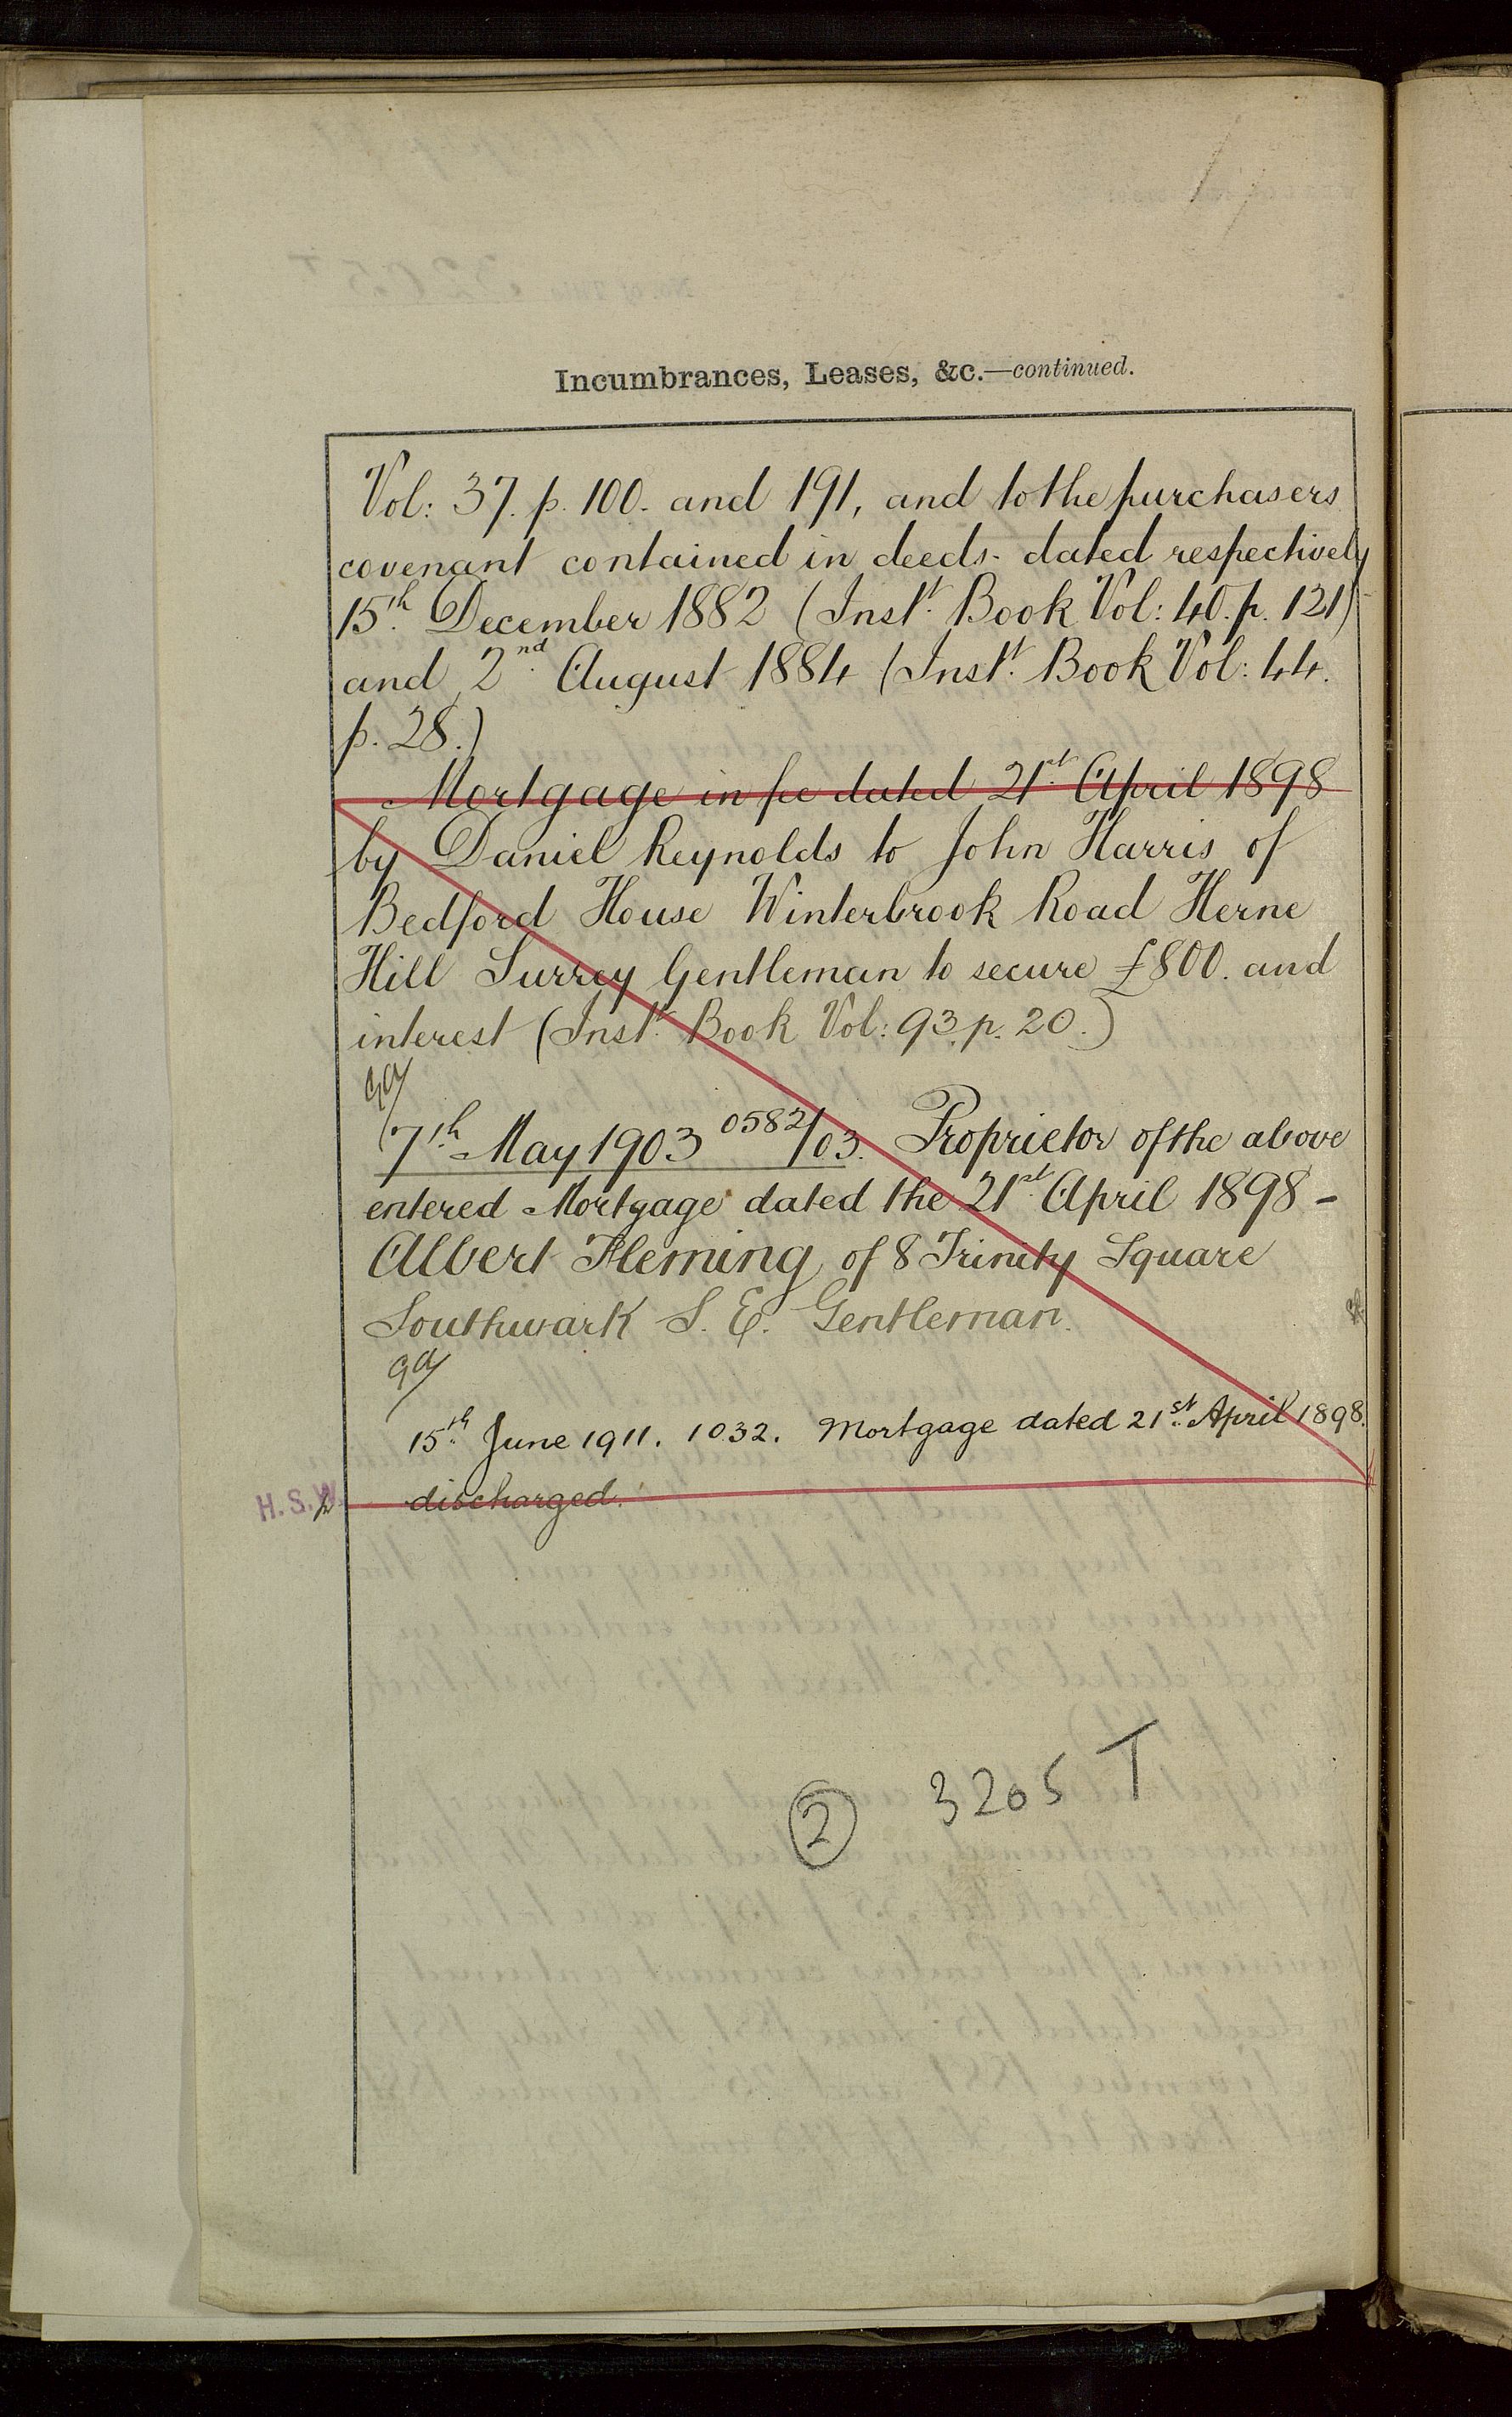 Incumbrances, Leases, &c.—continued.
Vol: 37. p. 100. and 191, and to the purchasers
covenant contained in deeds. dated respectively
15th. December 1882 (Inst. Book Vol: 40. p. 121)
and 2nd. August 1884 (Inst. Book Vol: 44.
p. 28.)
Mortgage in fee dated 21st. April 1898
by Daniel Reynolds to John Harris of
Bedford House Winterbrook Road Herne
Hill Surrey Gentleman to secure £800. and
interest (Inst. Book Vol: 93. p. 20.)
7th. May 1903 0582/03. Proprietor of the above
entered Mortgage dated the 21st. April 1898 -
Albert Fleming of 8 Trinity Square
Southwark S. E. Gentleman.
15th. June 1911. 1032. Mortgage dated 21st. April 1898.
H.S.W. discharged.
2 3205 T